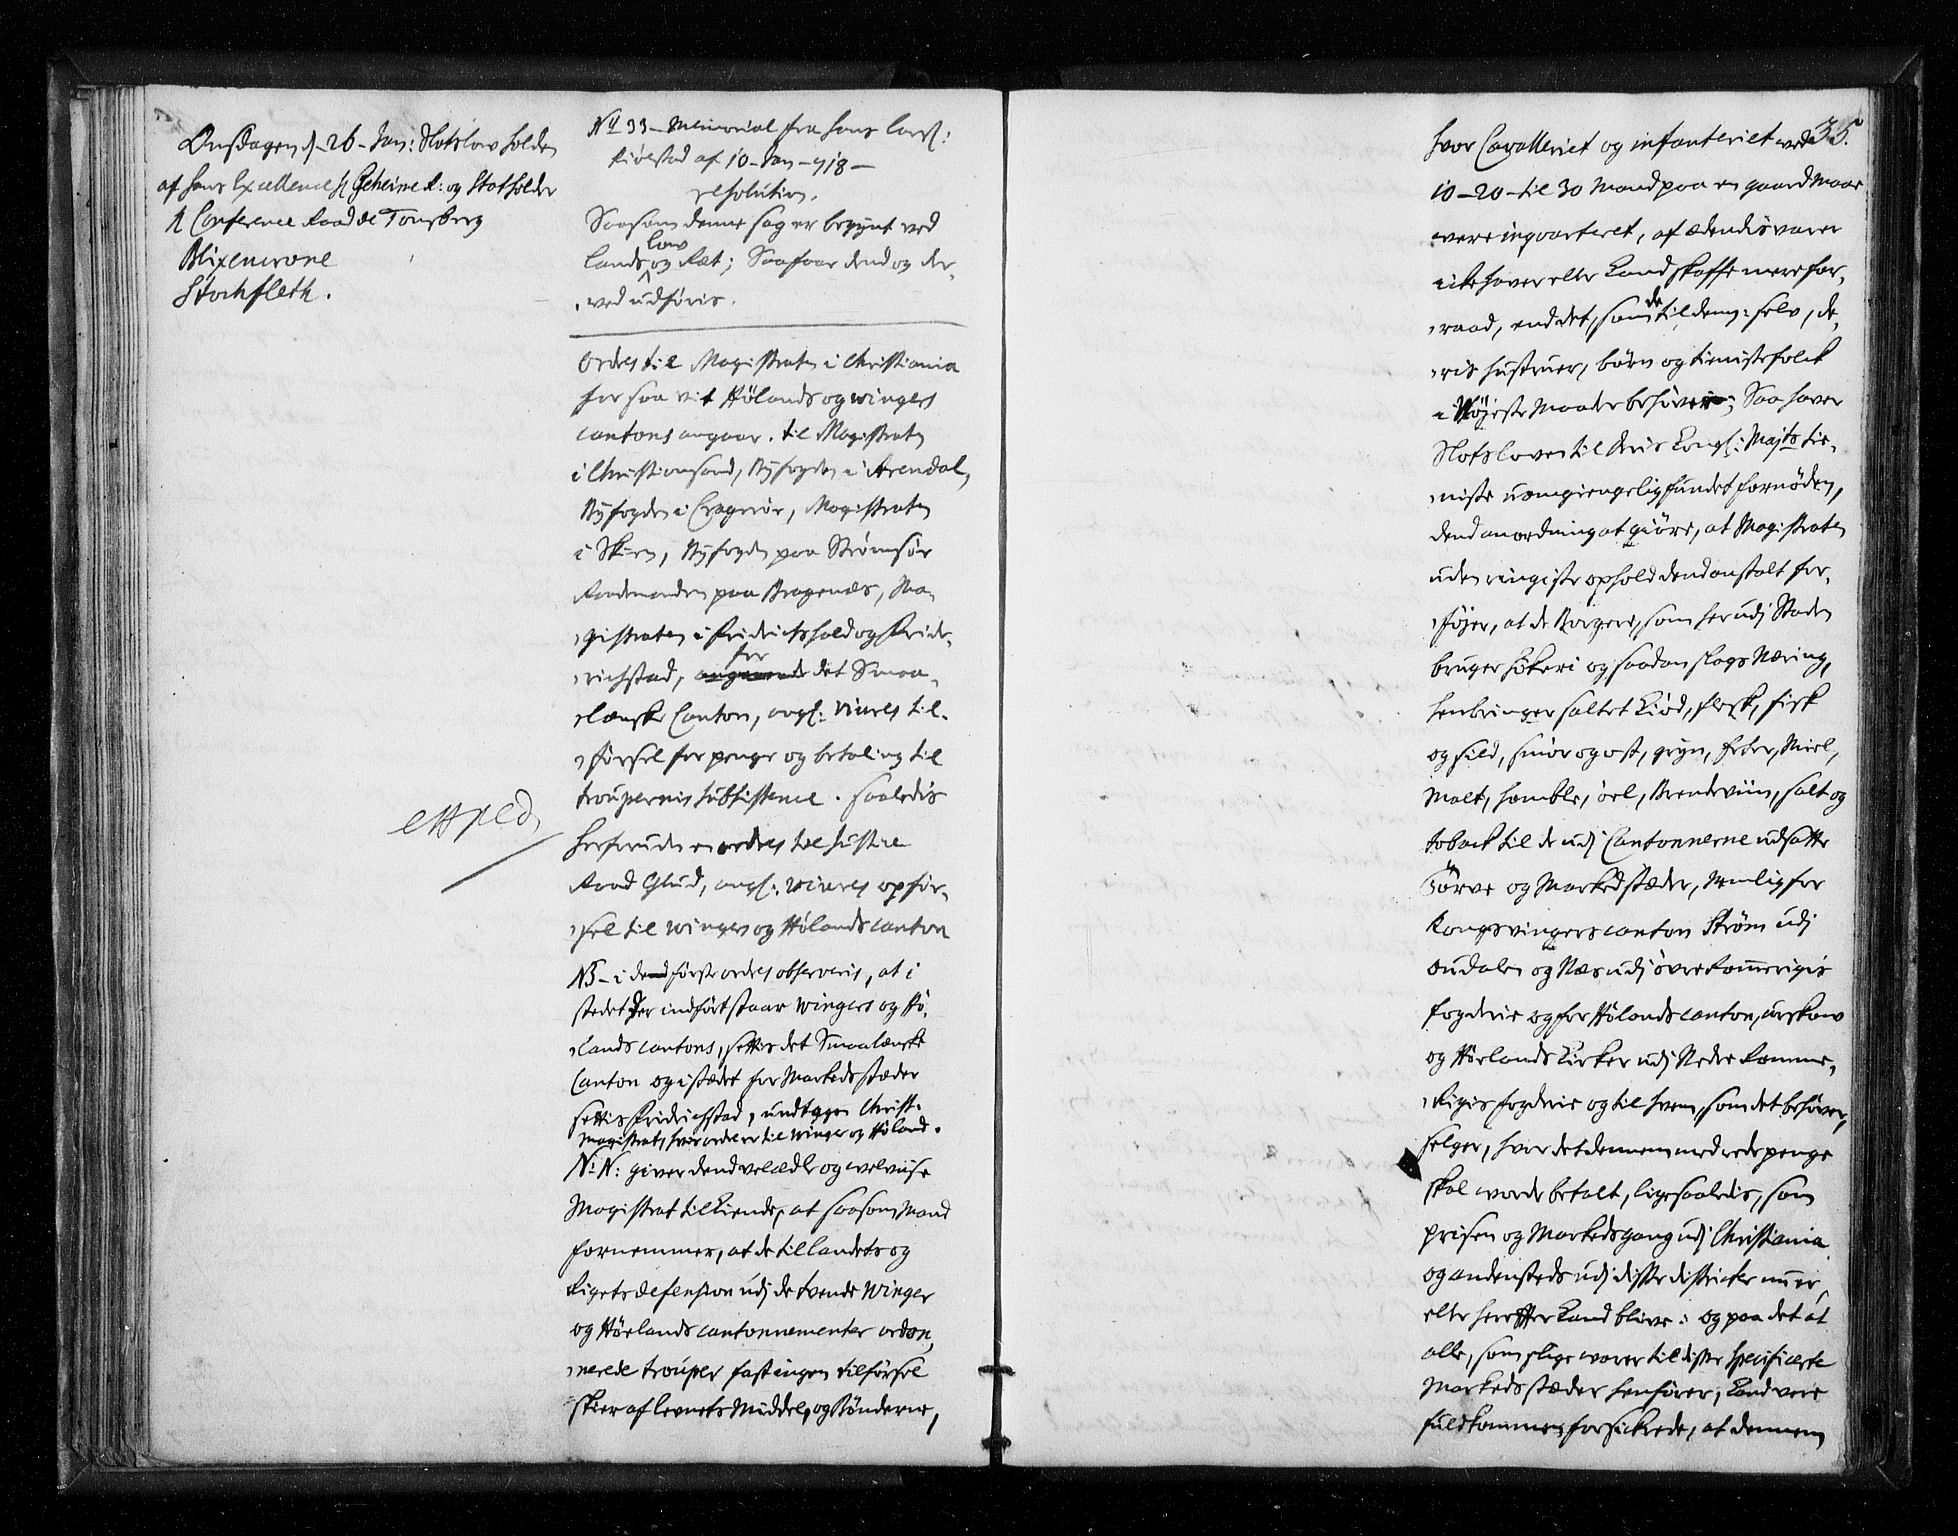 Onsdagen d. 26 Jan: Slotslow holden
af hans Excellence H Geheime R: og Statholder
H Conference Raad de Tonsberg
Blixencrone
Stockfleth.
expeд
No 33 - Memorial fra hans Cars:
Kiølstad af 10 - Jan - 718 -
resolution.
Saasom denne sag er begynt ved
Lands low og Ræt; Saa faar dend og der-
ved udføris.
Ordres til Magistraten i Christiania
for saa vit Hølands og wingers
cantons angaar. til Magistraten
i Christiansand, Byfogden i Arendal,
Byfogden i Cragerøe, Magistraten
i Skien, Byfogden paa Strømsøe
Raadmanden paa Bragenæs, Ma-
gistraten i Fridrichshald og Fride-
richstad, angaaende for det Smaa-
lenske Canton, angl: vivres til-
førsel for penge og betaling til
troupernis subsistence. saaledis
herforuden en ordres til Justice
Raad Glud, angl: vivres opfør-
sel til winger og Hølands canton
NB - i dend første ordres observeris, at i
stedet der indført staar wingers og Hø-
lands cantons, settis det Smaalenske
Canton og i stædet for Markedsstæder
settis Fridrichstad, undtagen Christ:
Magistrat, hvor ordre er til winger og Høland.
N: N: giver dend velædle og velviise
Magistrat tilkiende, at saasom Mand
fornemmer, at de til landets og
Rigets defension udj de tvende winger
og Hølands cantonnementer ordon-
nerede trouper fast ingen tilførsel
skeer af levnets Middel, og Bønderne,
35.
hvor Cavalleriet og infanteriet ved
10 - 20 - til 30 Mand paa en gaard Maae
være inqvarteret, af ædendis varer
icke haver eller Kand skaffe mere for-
raad, end det, som de til dem selv, de-
ris hustruer, børn og tienistefolck
i Høyeste Maade behøver; Saa haver
Slotsloven til deris Kongl: Mayts tie-
niste uomgiengelig fundet fornøden,
dend anordning at giøre, at Magistraten
uden ringiste ophold dend anstalt for-
føjer, at de Borgere, som her udj Staden
bruger høkeri og saadan slags Næring,
henbringer saltet Kiød, flesk, fisk
og sild, smør og ost, gryn, erter, Miel,
Malt, homble, øel, Brendeviin, salt og
toback til de udj Cantonnerne udsatte
Torve og Markedsstæder, Nemlig for
Kongsvingers canton Strøm udj
Oudalen og Næs udj øvre Rommerigis
fogderie og for Hølands canton, urskow
og Hørlands Kirker udj Nedre Romme-
Rigis fogderie og til hvem, som det behøver,
selger, hvor det dennem med rede penge
skal worde betalt, ligesaaledis, som
prisen og Markedsgang udj Christiania
og andensteds udj disse districter nu er
eller herefter Kand blive: og paa det at
alle, som slige warer til disse specificerte
Markedsstæder henfører, Kand vere
fuldkommen forsickrede, at dennem